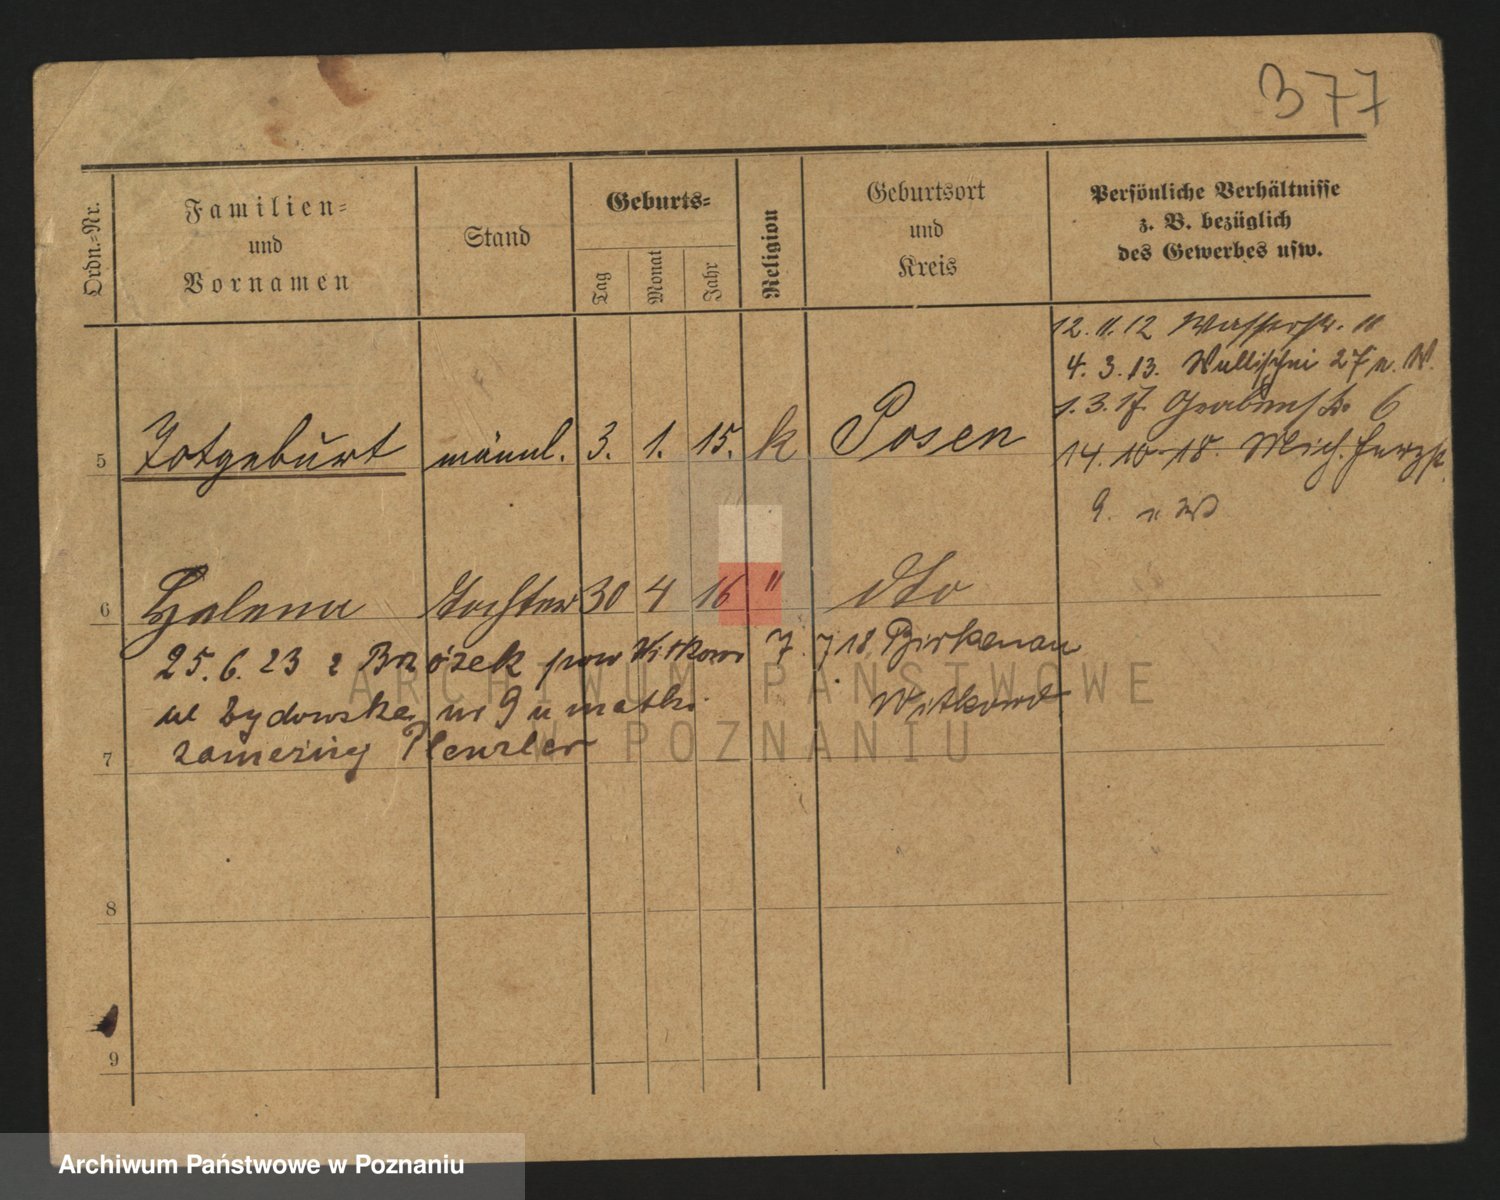 377
Ordn.=Nr.
Familien=
und
Vornamen
Stand
Geburts=
Tag
Monat
Jahr
Religion
Geburtsort
und
Kreis
Persönliche Verhältnisse
z. B. bezüglich
des Gewerbes usw.
12. 11. 12 Wasserstr. 11
4. 3. 13. Wallischei 27 n. W.
1. 3. 17. Grabenstr. 6
5 Totgeburt männl. 3. 1. 15. k Posen
14. 10. 18.
9. n W
6 Helena Tochter 30 4 16 " dto
25. 6. 23 z Brzózek pow Witkowo 7. 7. 18. Birkenau
ul Żydowska nr 9 u matki Witkowo
zamężnej
7
8
9
ARCHIWUM PAŃSTWOWE
W POZNANIU
Archiwum Państwowe w Poznaniu